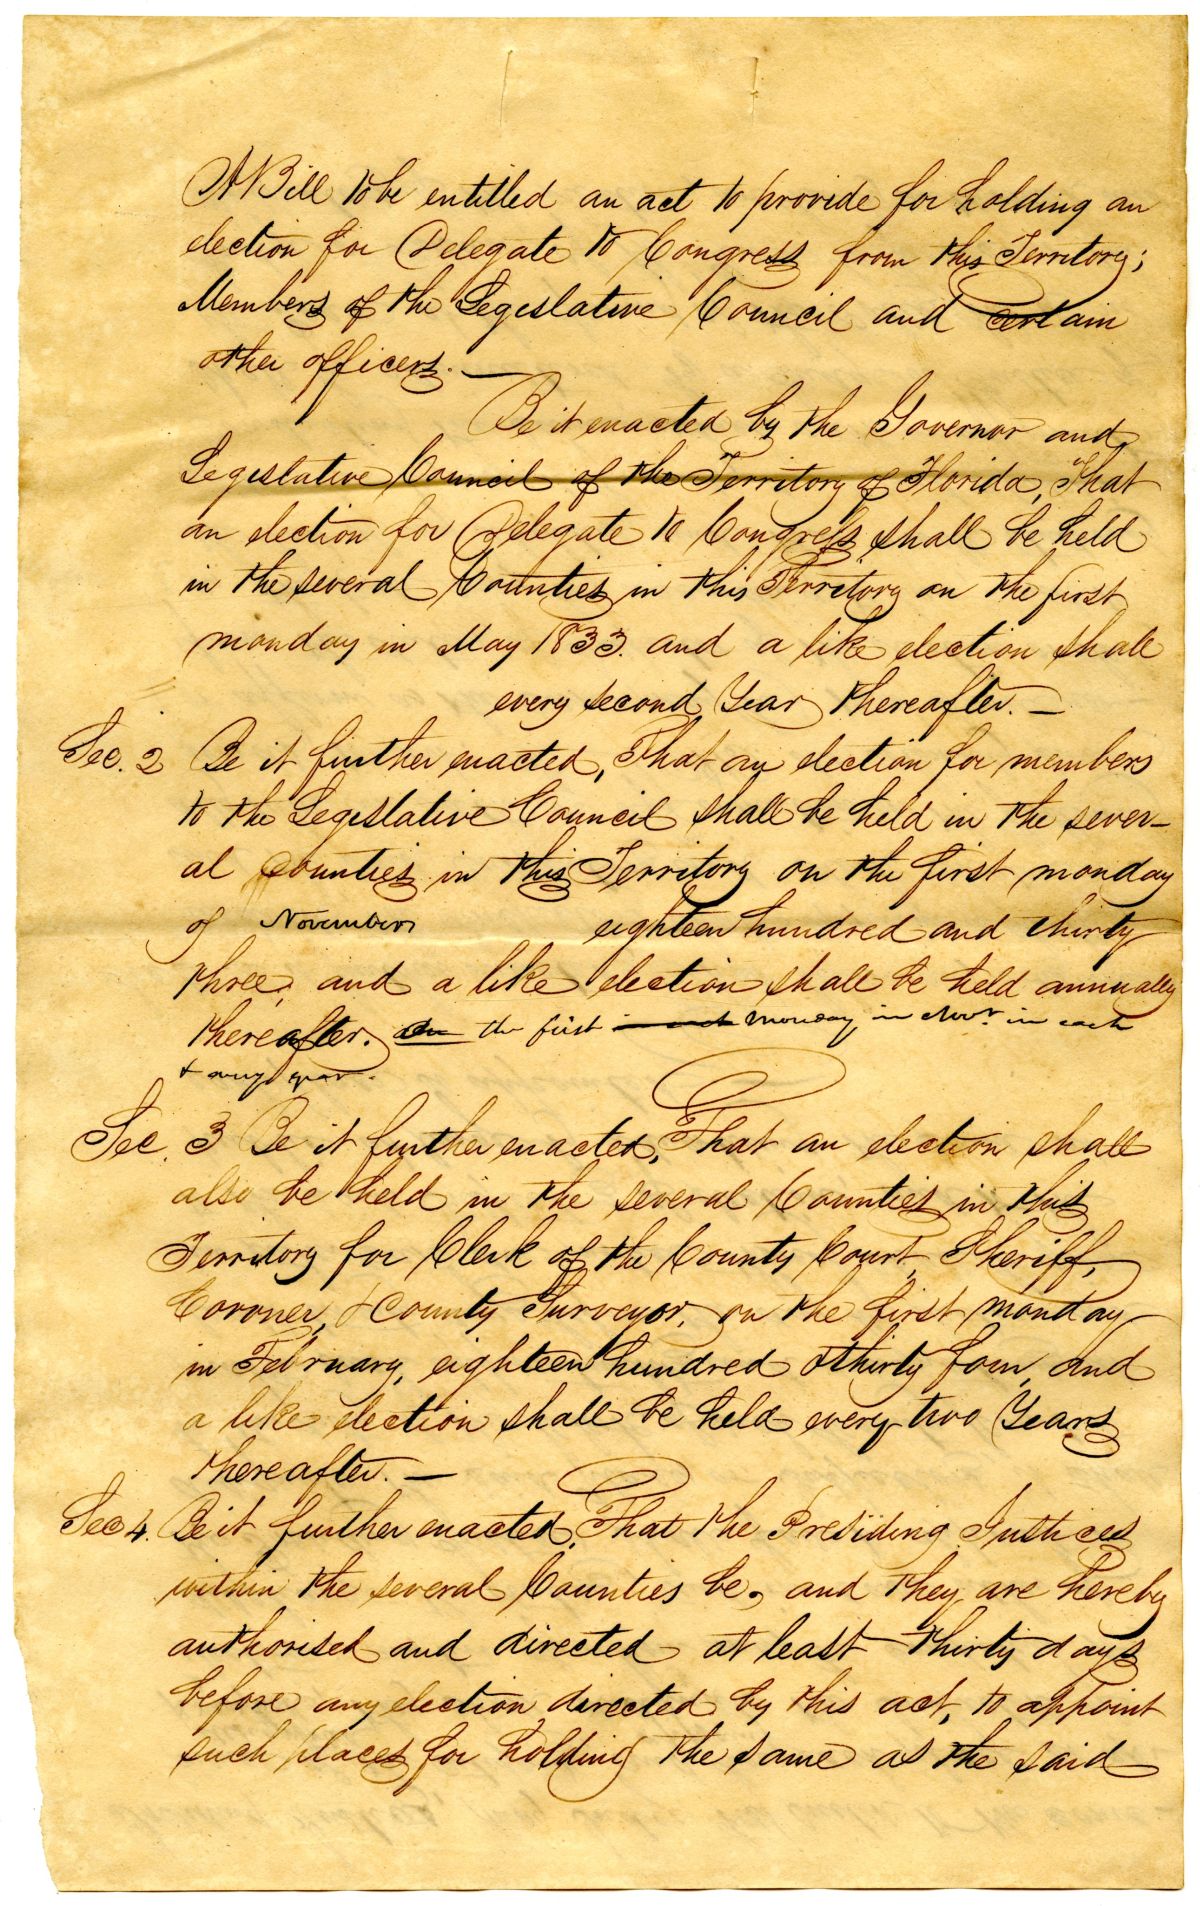 A Bill to be entitled an act to provide for holding an
election for Delegate to Congress from this Territory;
Members of the Legislative Council and certain
other officers. —
Be it enacted by the Governor and
Legislative Council of the Territory of Florida, That
an election for Delegate to Congress shall be held
in the several Counties in this Territory on the first
monday in May 1833. and a like election shall
every second Year thereafter. —
Sec. 2 Be it further enacted, That an election for members
to the Legislative Council shall be held in the sever-
al Counties in this Territory on the first monday
of November eighteen hundred and thirty
three, and a like election shall be held annually
thereafter. on the first monday in Novr. in each
& every year.
Sec. 3 Be it further enacted, That an election shall
also be held in the several Counties in this
Territory for Clerk of the County Court, Sheriff,
Coroner, & County Surveyor, on the first monday
in February, eighteen hundred & thirty four, and
a like election shall be held every two Years
thereafter. —
Sec 4. Be it further enacted, That the Presiding Justices
within the several Counties be, and they are hereby
authorised and directed at least thirty days
before any election directed by this act, to appoint
such places for holding the same as the said